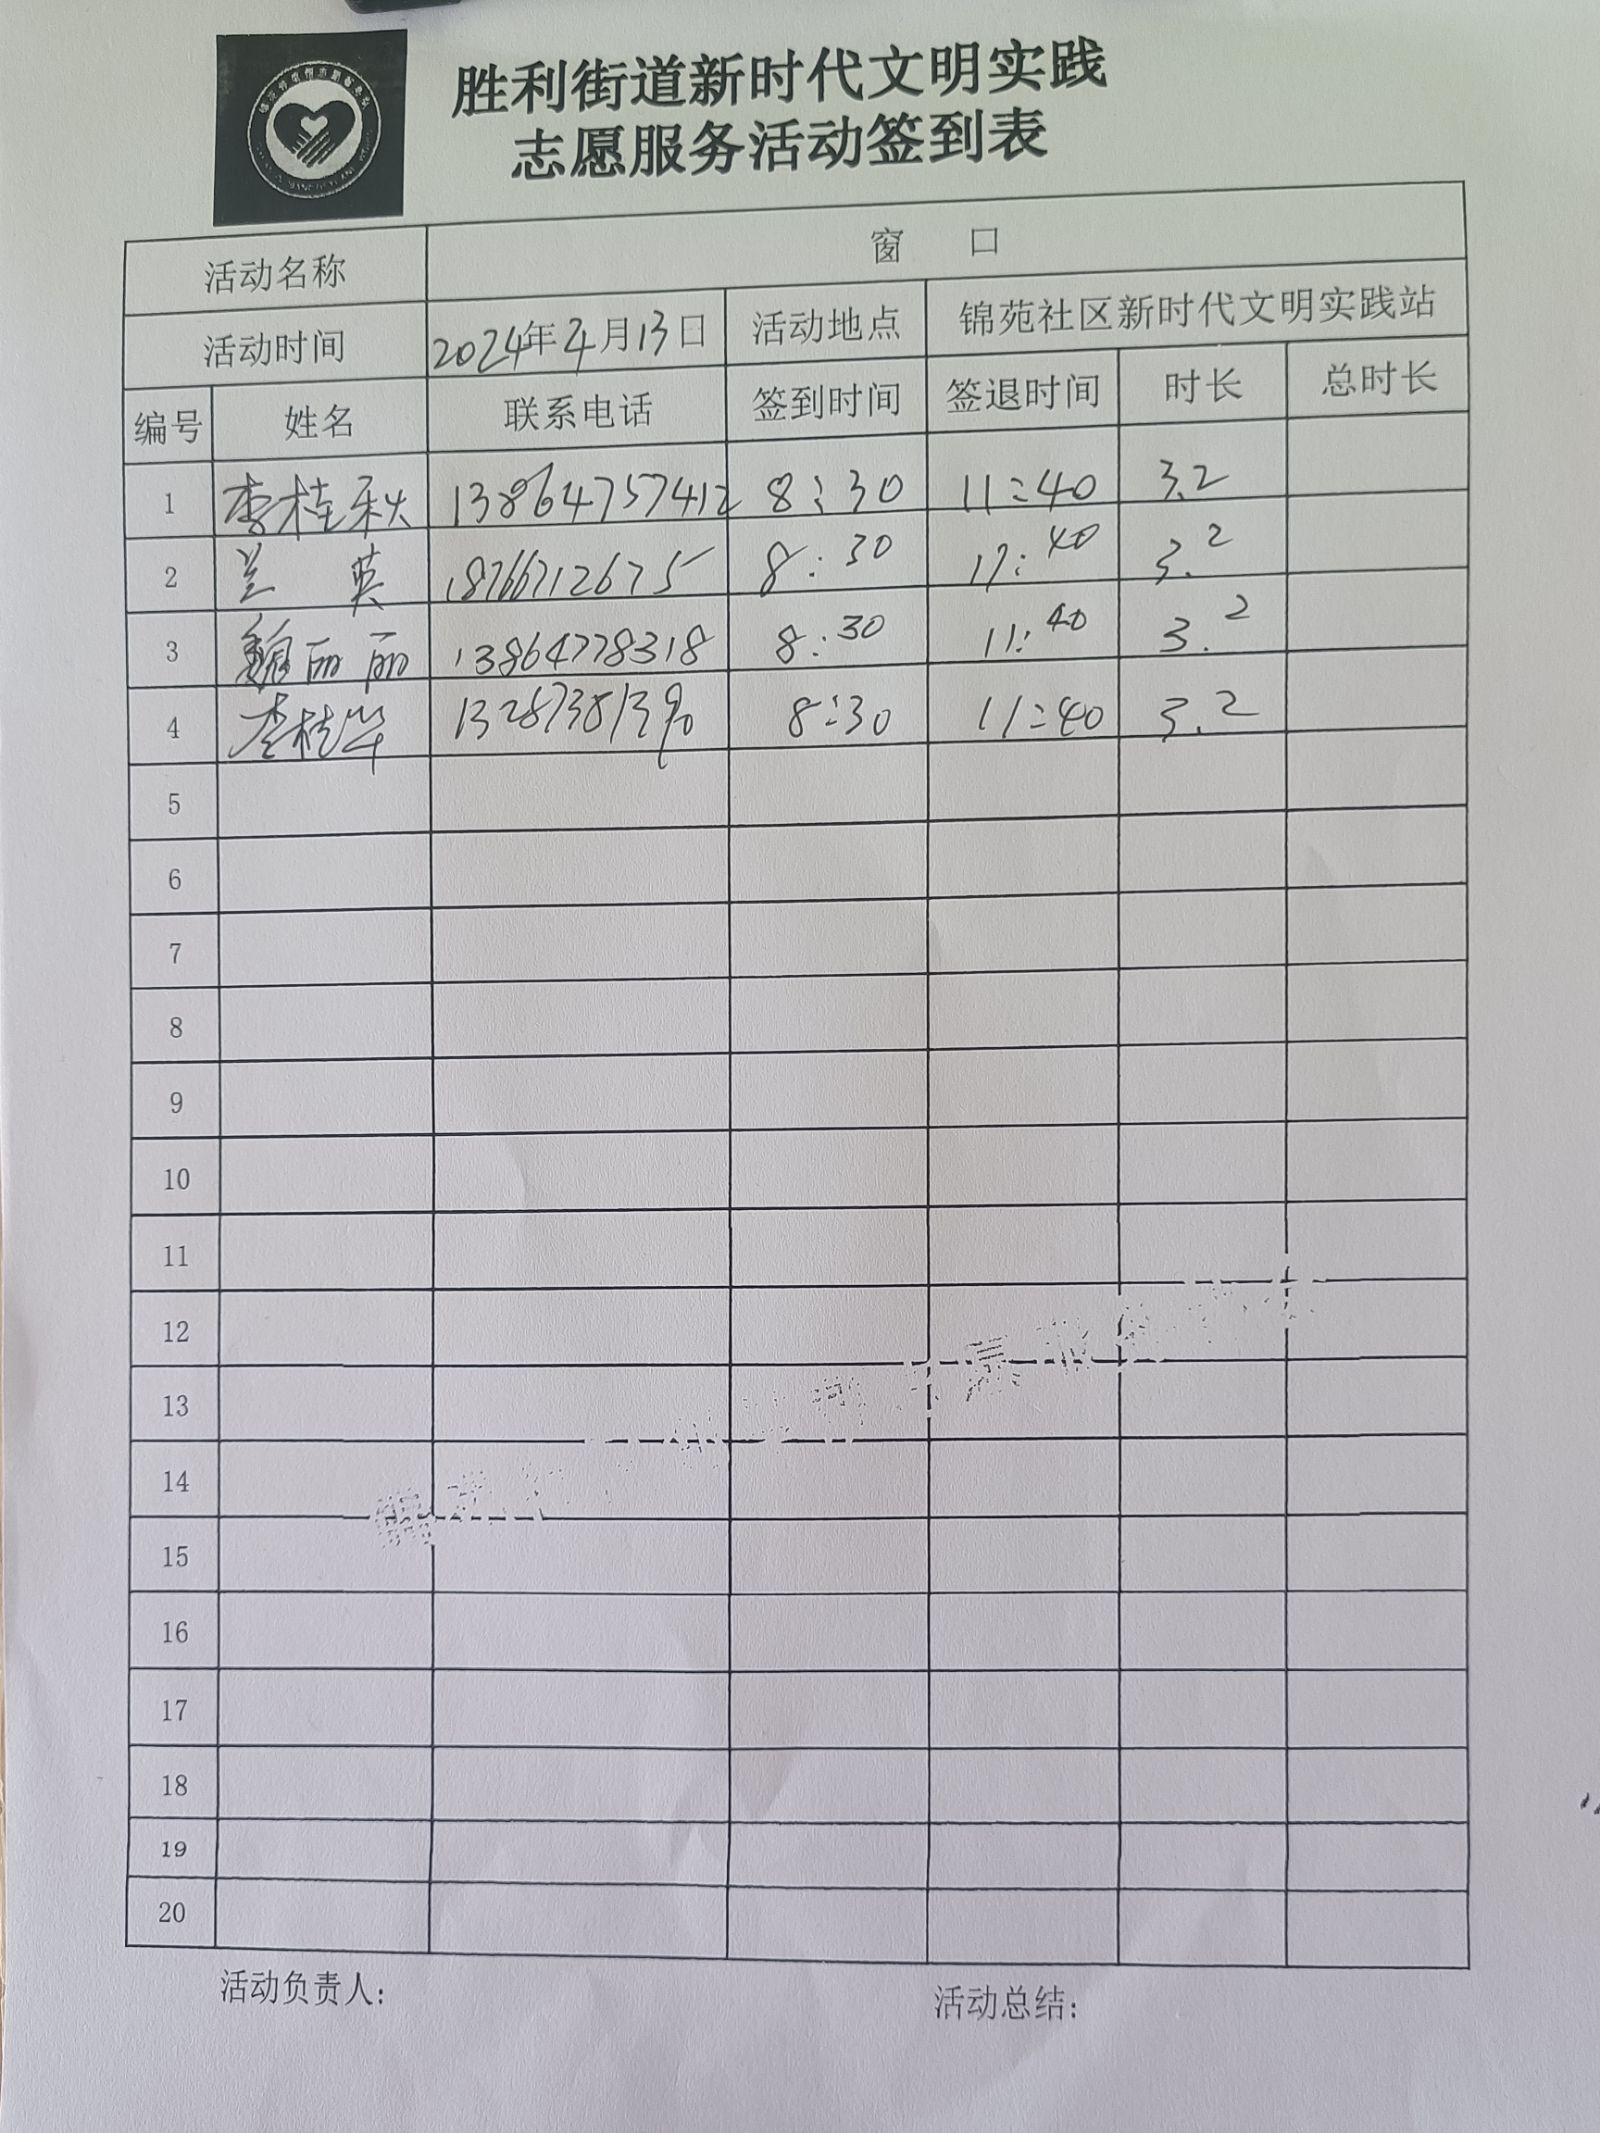 胜利街道新时代文明实践
志愿服务活动签到表
活动名称 窗 口
活动时间 2024年4月13日 活动地点 锦苑社区新时代文明实践站
编号 姓名 联系电话 签到时间 签退时间 时长 总时长
1 李桂秋 13864757412 8:30 11:40 3.2
2 兰 英 18766712675 8:30 11:40 3.2
3 魏丽丽 13864778318 8:30 11:40 3.2
4 李桂华 8:30 11:40 3.2
5
6
7
8
9
10
11
12
13
14
15
16
17
18
19
20
活动负责人: 活动总结: